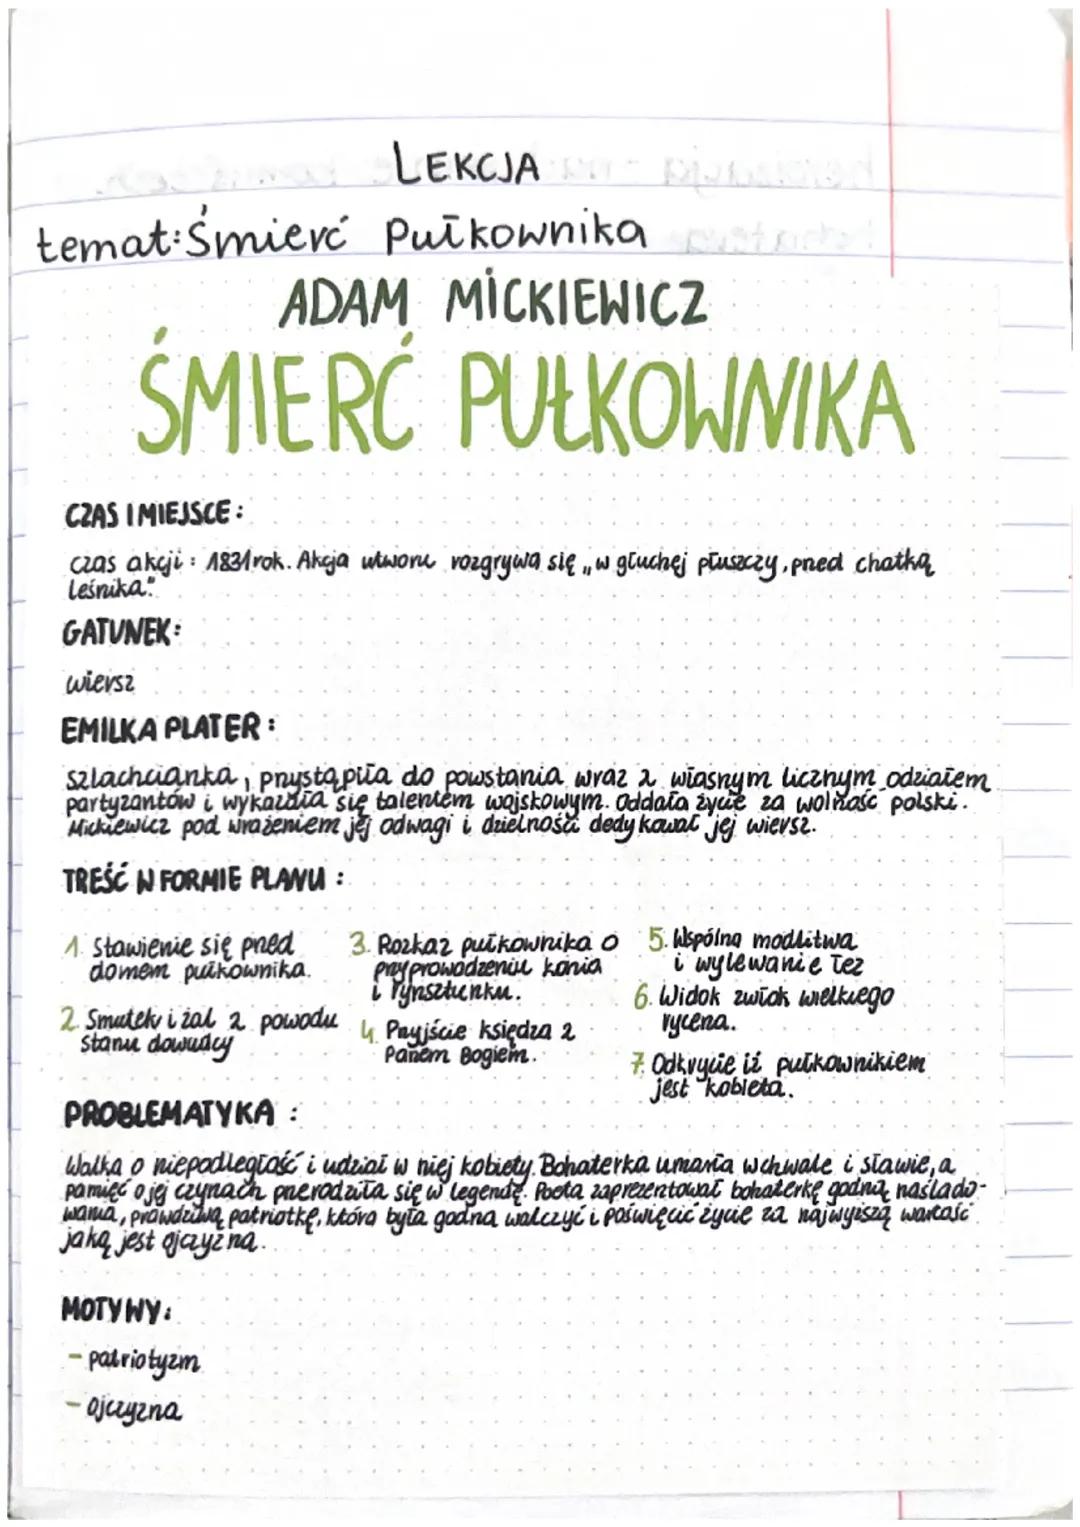 LEKCJA
temat: Śmierć Pułkownika
ADAM MICKIEWICZ
ŚMIERĆ PUŁKOWNIKA
CZAS I MIEJSCE:
czas akcji: 1831 rok. Akcja utworu rozgrywa się „w głuchej płuszczy, pred chatką
leśnika."
GATUNEK:
wiersz
EMILKA PLATER:
szlachcianka, przystąpiła do powstania wraz z własnym licznym odziałem
partyzantów i wykazała się talentem wojskowym. Oddała życie za wolność polski.
Mickiewicz pod wrażeniem jej odwagi i dzielności dedykował jej wiersz.
TREŚĆ W FORMIE PLANU:
1. Stawienie się przed
domem pułkownika.
2. Smutek i żal z powodu
stanu dowódcy
3. Rozkaz pułkownika o
przyprowadzeniu konia
i rynsztunku.
4. Przyjście księdza z
Panem Bogiem.
5. Wspólna modlitwa
i wylewanie łez
6. Widok zwłok wielkiego
rycerza.
7. Odkrycie iż pułkownikiem
jest kobieta.
PROBLEMATYKA:
Walka o niepodległość i udział w niej kobiety. Bohaterka umarła w chwale i sławie, a
pamięć o jej czynach przerodziła się w legendę. Poeta zaprezentował bohaterkę godną naślado-
wania, prawdziwą patriotkę, która była godna walczyć i poświęcić życie za najwyższą wartość
jaką jest ojczyzna.
MOTYWY:
- patriotyzm
- ojczyzna